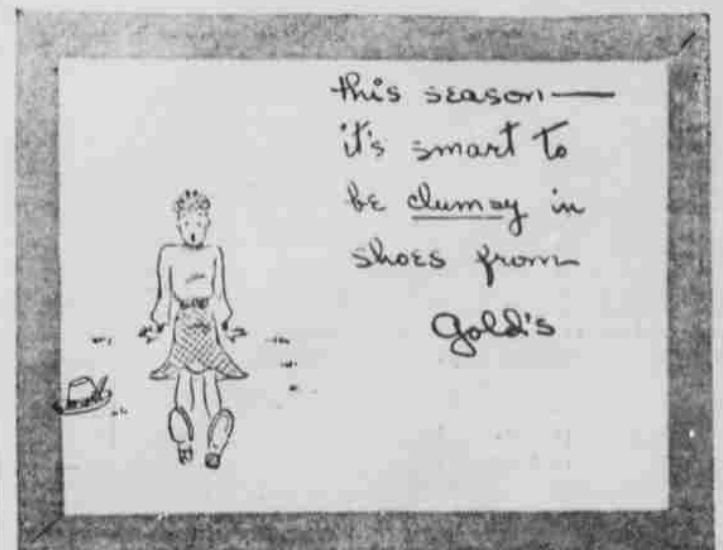 this season—
it's smart to
be clumsy in
shoes from
Gold's